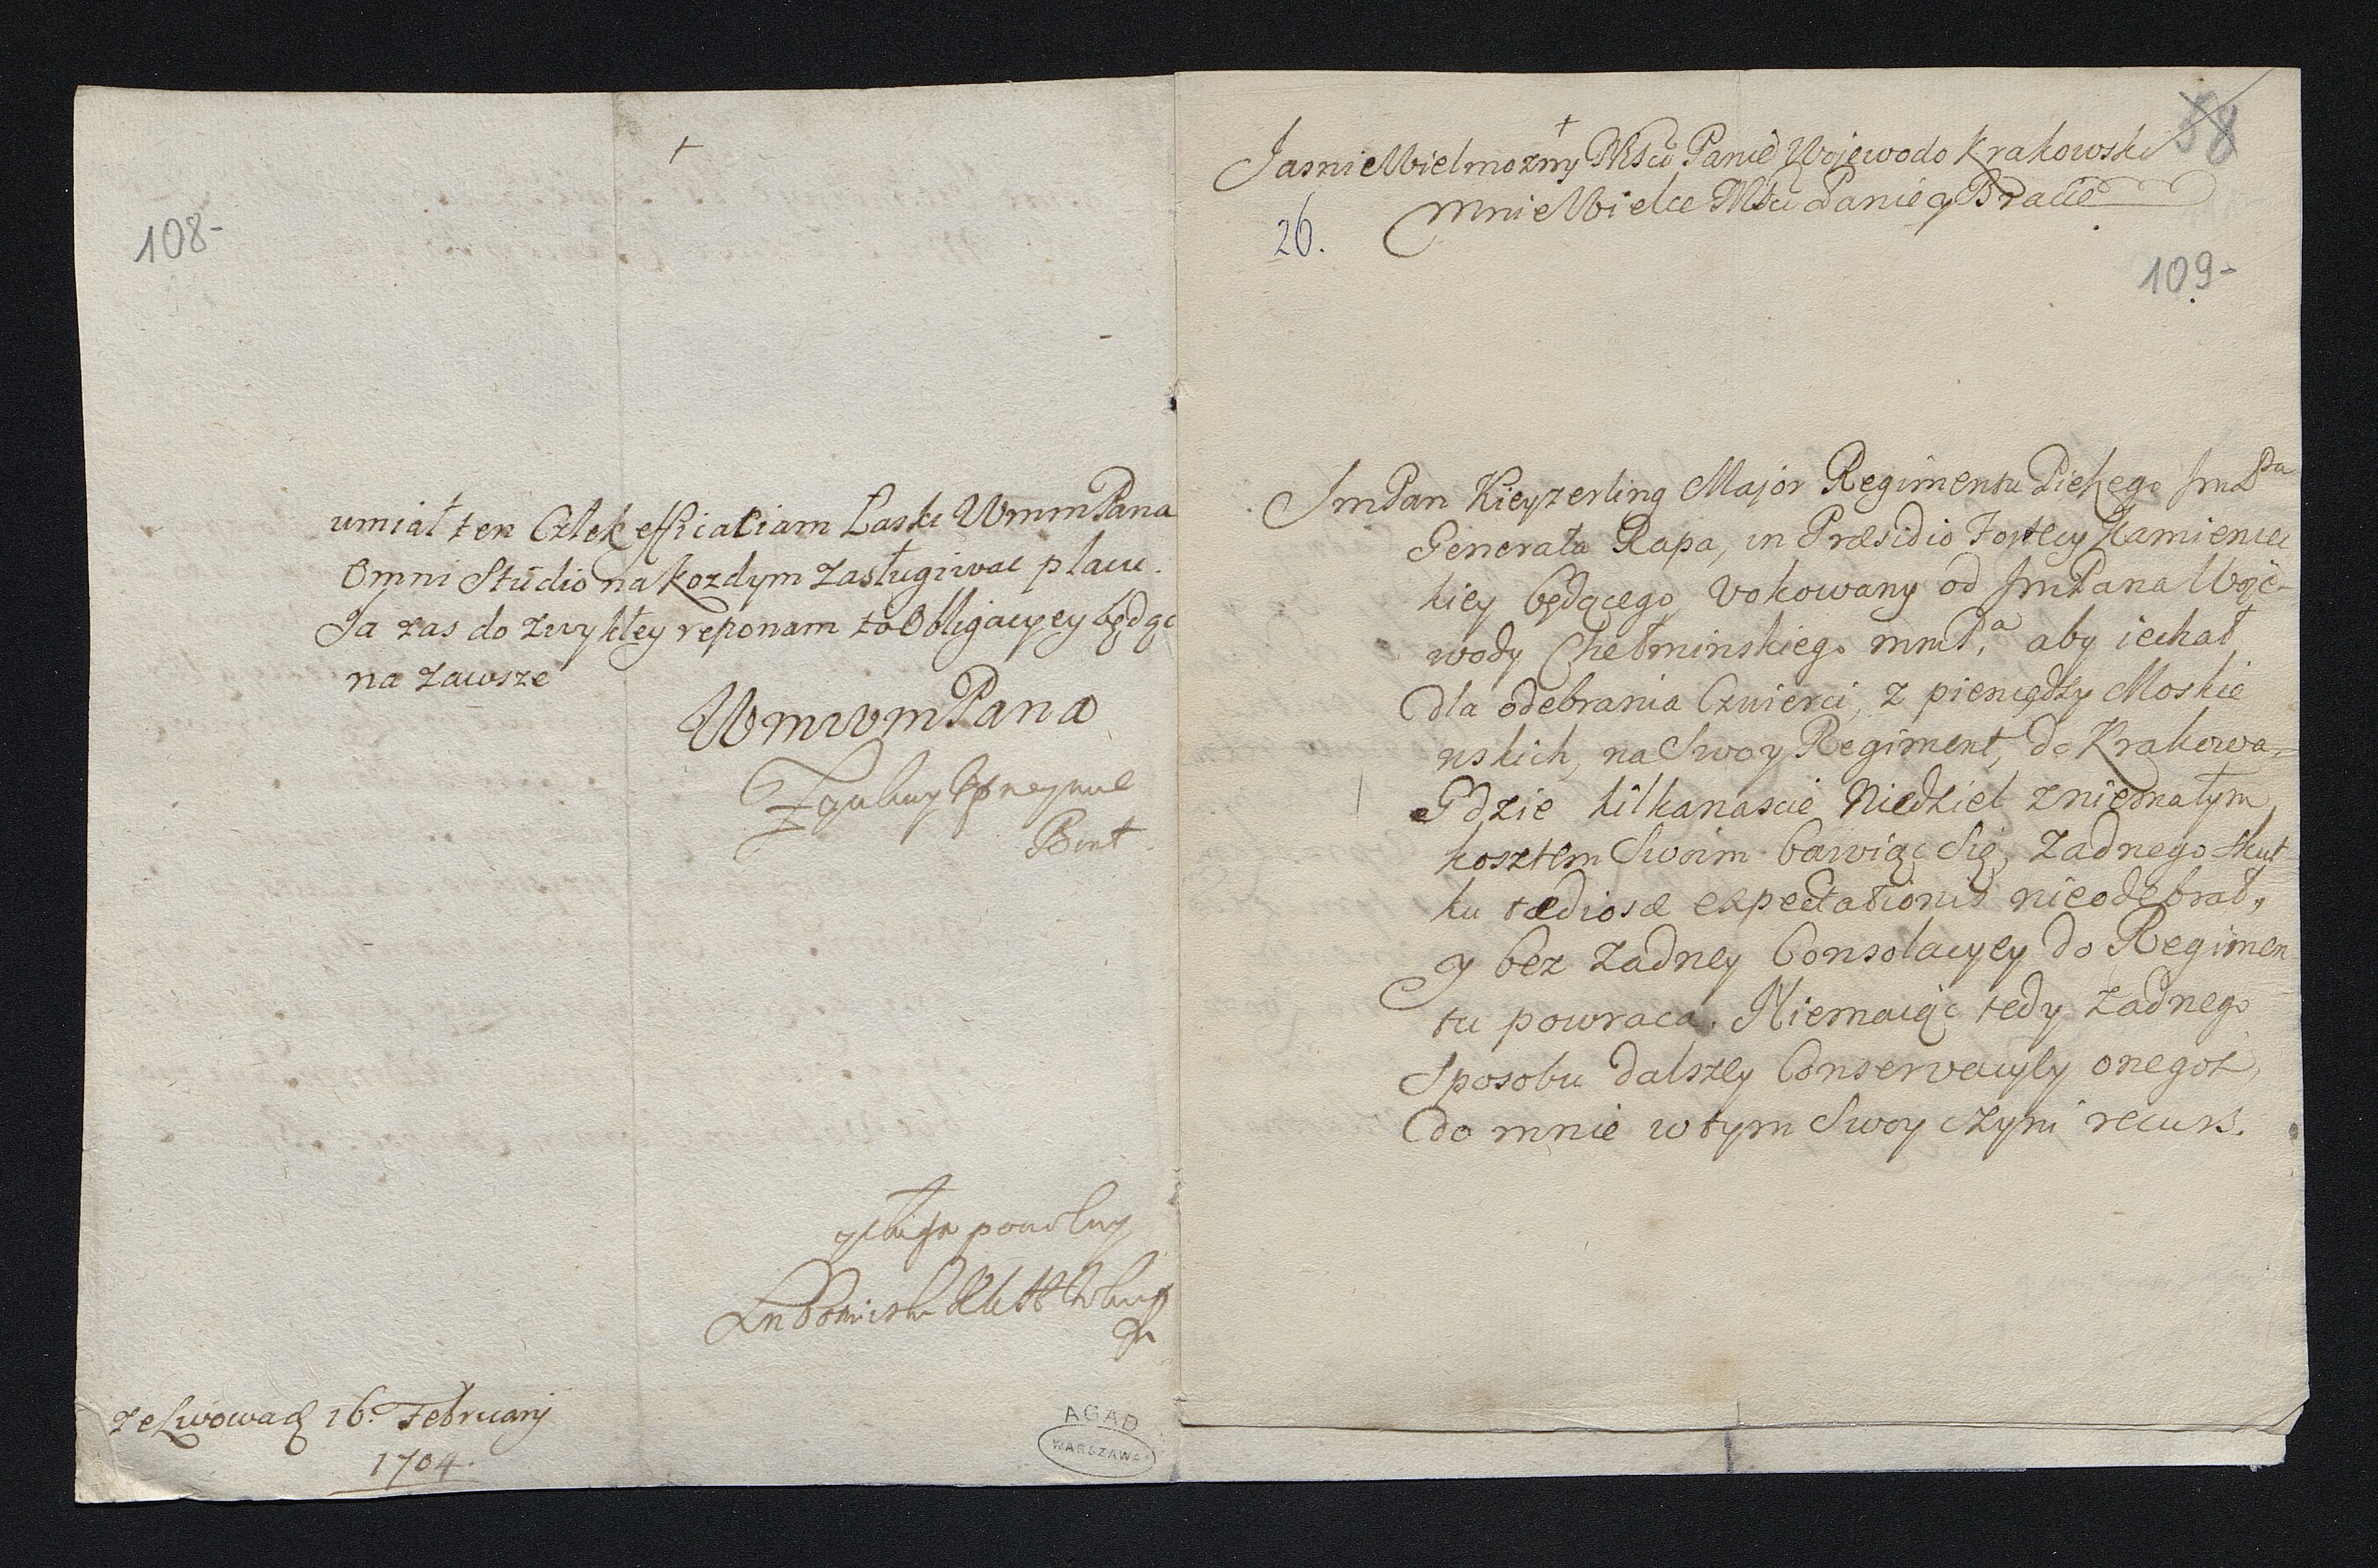 +
108-
umiał ten Człek efficaciam Łaski WmmPana
Omni Studio na kozdym zasługiwac placu.
Ja zas do zwykłey reponam to Obligacyey będąc
na zawsze
WmwmPana
Brat
y sługa powolny
Lubomirski
ze Lwowa d 16. February
1704.
AGAD
WARSZAWA
+
88
JasnieWielmozny Mści Panie Wojewodo Krakowski
mnieWielce Mści Panie y Bracie
26.
109-
JmPan Kieyzerling Major Regimentu Piehego JmPa
Generała Rapa, in Præsidio Fortecy Kamieniec
kiey będącego, vokowany od JmPana Woje-
wody Chełminskiego mmPa, aby iechał
dla odebrania Czwierci, z pieniędzy Moskie
wskich, na Swoy Regiment, do Krakowa,
Gdzie kilkanascie Niedziel zniemałym
kosztem Swoim bawiąc Się, zadnego skut
ku tædiosæ expectationis nieodebrał,
y bez zadney Consolacyey do Regimen
tu powraca. Niemaiąc tedy zadnego
Sposobu dalszey Conservacyey onegoż,
do mnie w tym Swoy czyni recurs.